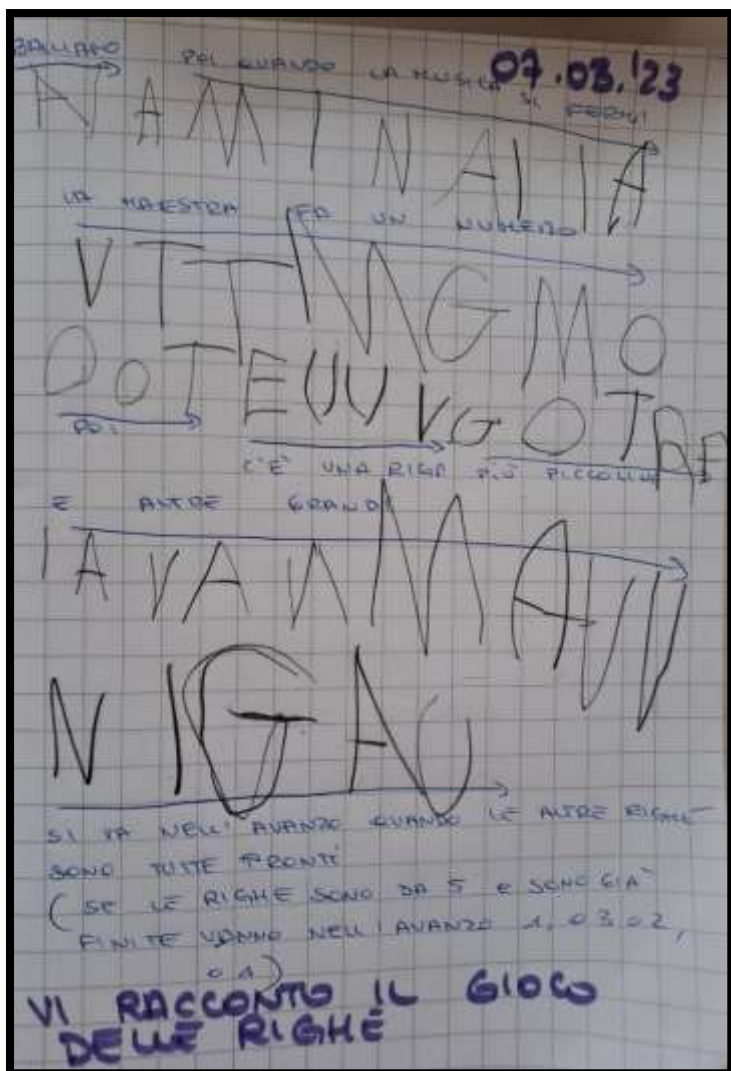 BALLANO POI QUANDO LA MUSICA SI FERMA 07.03.'23
NAMINAIIA
LA MAESTRA FA UN NUMERO
VTTNGMO
OOTEUUVGOTRE
POI C'È UNA RIGA PIÙ PICCOLINA
E ALTRE GRANDI
IAVANMAUU
NIGAU
SI VA NELL'AVANZO QUANDO LE ALTRE RIGHE
SONO TUTTE PRONTE
(SE LE RIGHE SONO DA 5 E SONO GIÀ
FINITE VANNO NELL'AVANZO 1, O 3 O 2,
O 1)
VI RACCONTO IL GIOCO
DELLE RIGHE